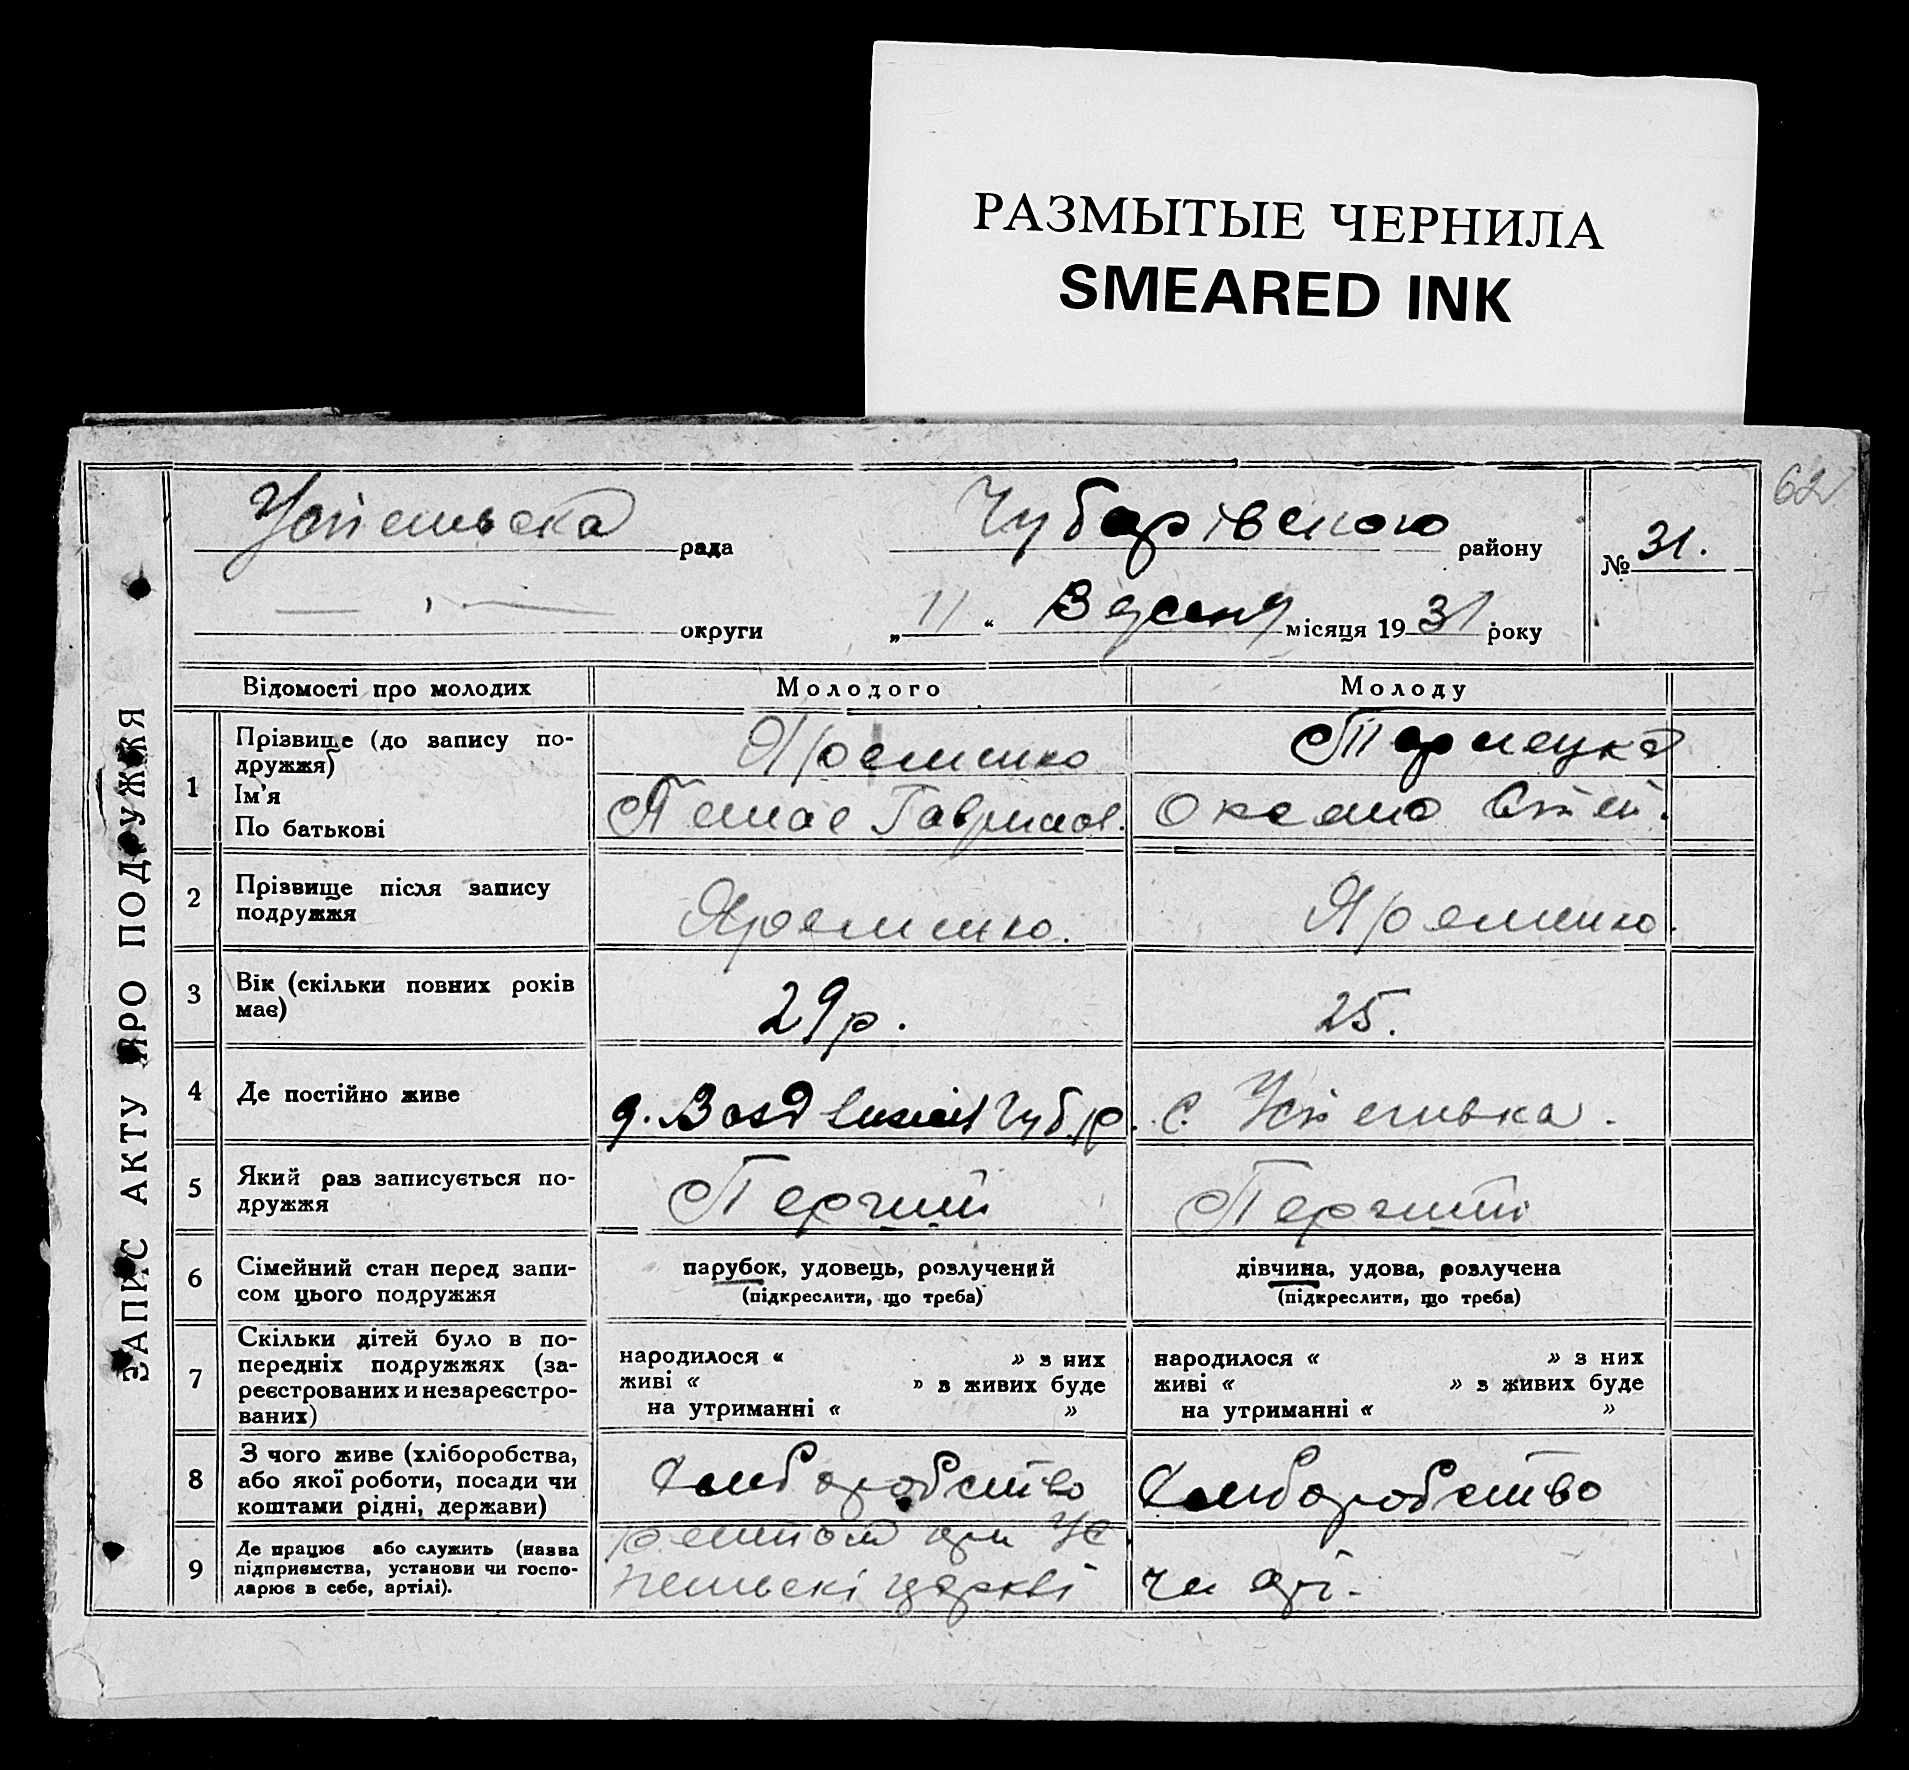 РАЗМЫТЫЕ ЧЕРНИЛА
SMEARED INK
62
ЗАПИС АКТУ ПРО ПОДРУЖЖЯ
Успенська рада
Чубарівського району
№ 31.
округи
„11“ Вересня місяця 1931 року
Відомості про молодих
Молодого
Молоду
1
Прізвище (до запису по-
дружжя)
Ім’я
По батькові
Яременко
Гаврилов.
Оксана Степ.
2
Прізвище після запису
подружжя
Яременко.
Яременко.
3
Вік (скільки повних років
має)
29 р.
25.
4
Де постійно живе
Чуб. р.
с. Успенівка.
5
Який раз записується по-
дружжя
Перший
Перший
6
Сімейний стан перед запи-
сом цього подружжя
парубок, удовець, розлучений
(підкреслити, що треба)
дівчина, удова, розлучена
(підкреслити, що треба)
7
Скільки дітей було в по-
передніх подружжях (за-
реєстрованих и незареєстро-
ваних)
народилося « » з них
живі « » з живих буде
на утриманні « »
народилося « » з них
живі « » з живих буде
на утриманні « »
8
З чого живе (хліборобства,
або якої роботи, посади чи
коштами рідні, держави)
Хліборобство
Хліборобство
9
Де працює або служить (назва
підприємства, установи чи госпо-
дарює в себе, артілі).
при Ус
пенські церкві